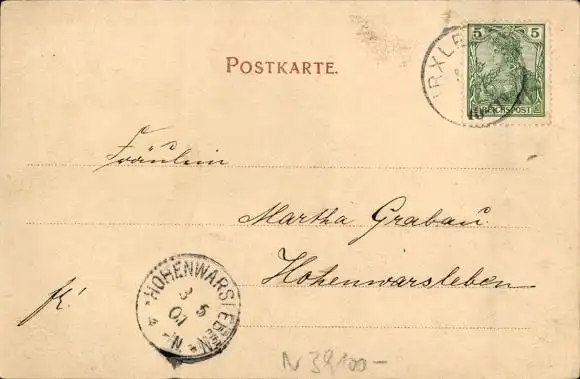 POSTKARTE.
5 5
REICHSPOST
Fräulein
Martha Grabau
Hohenwarsleben
HOHENWARSLEBEN
3 5
01
4-5 N.
N 39,00-